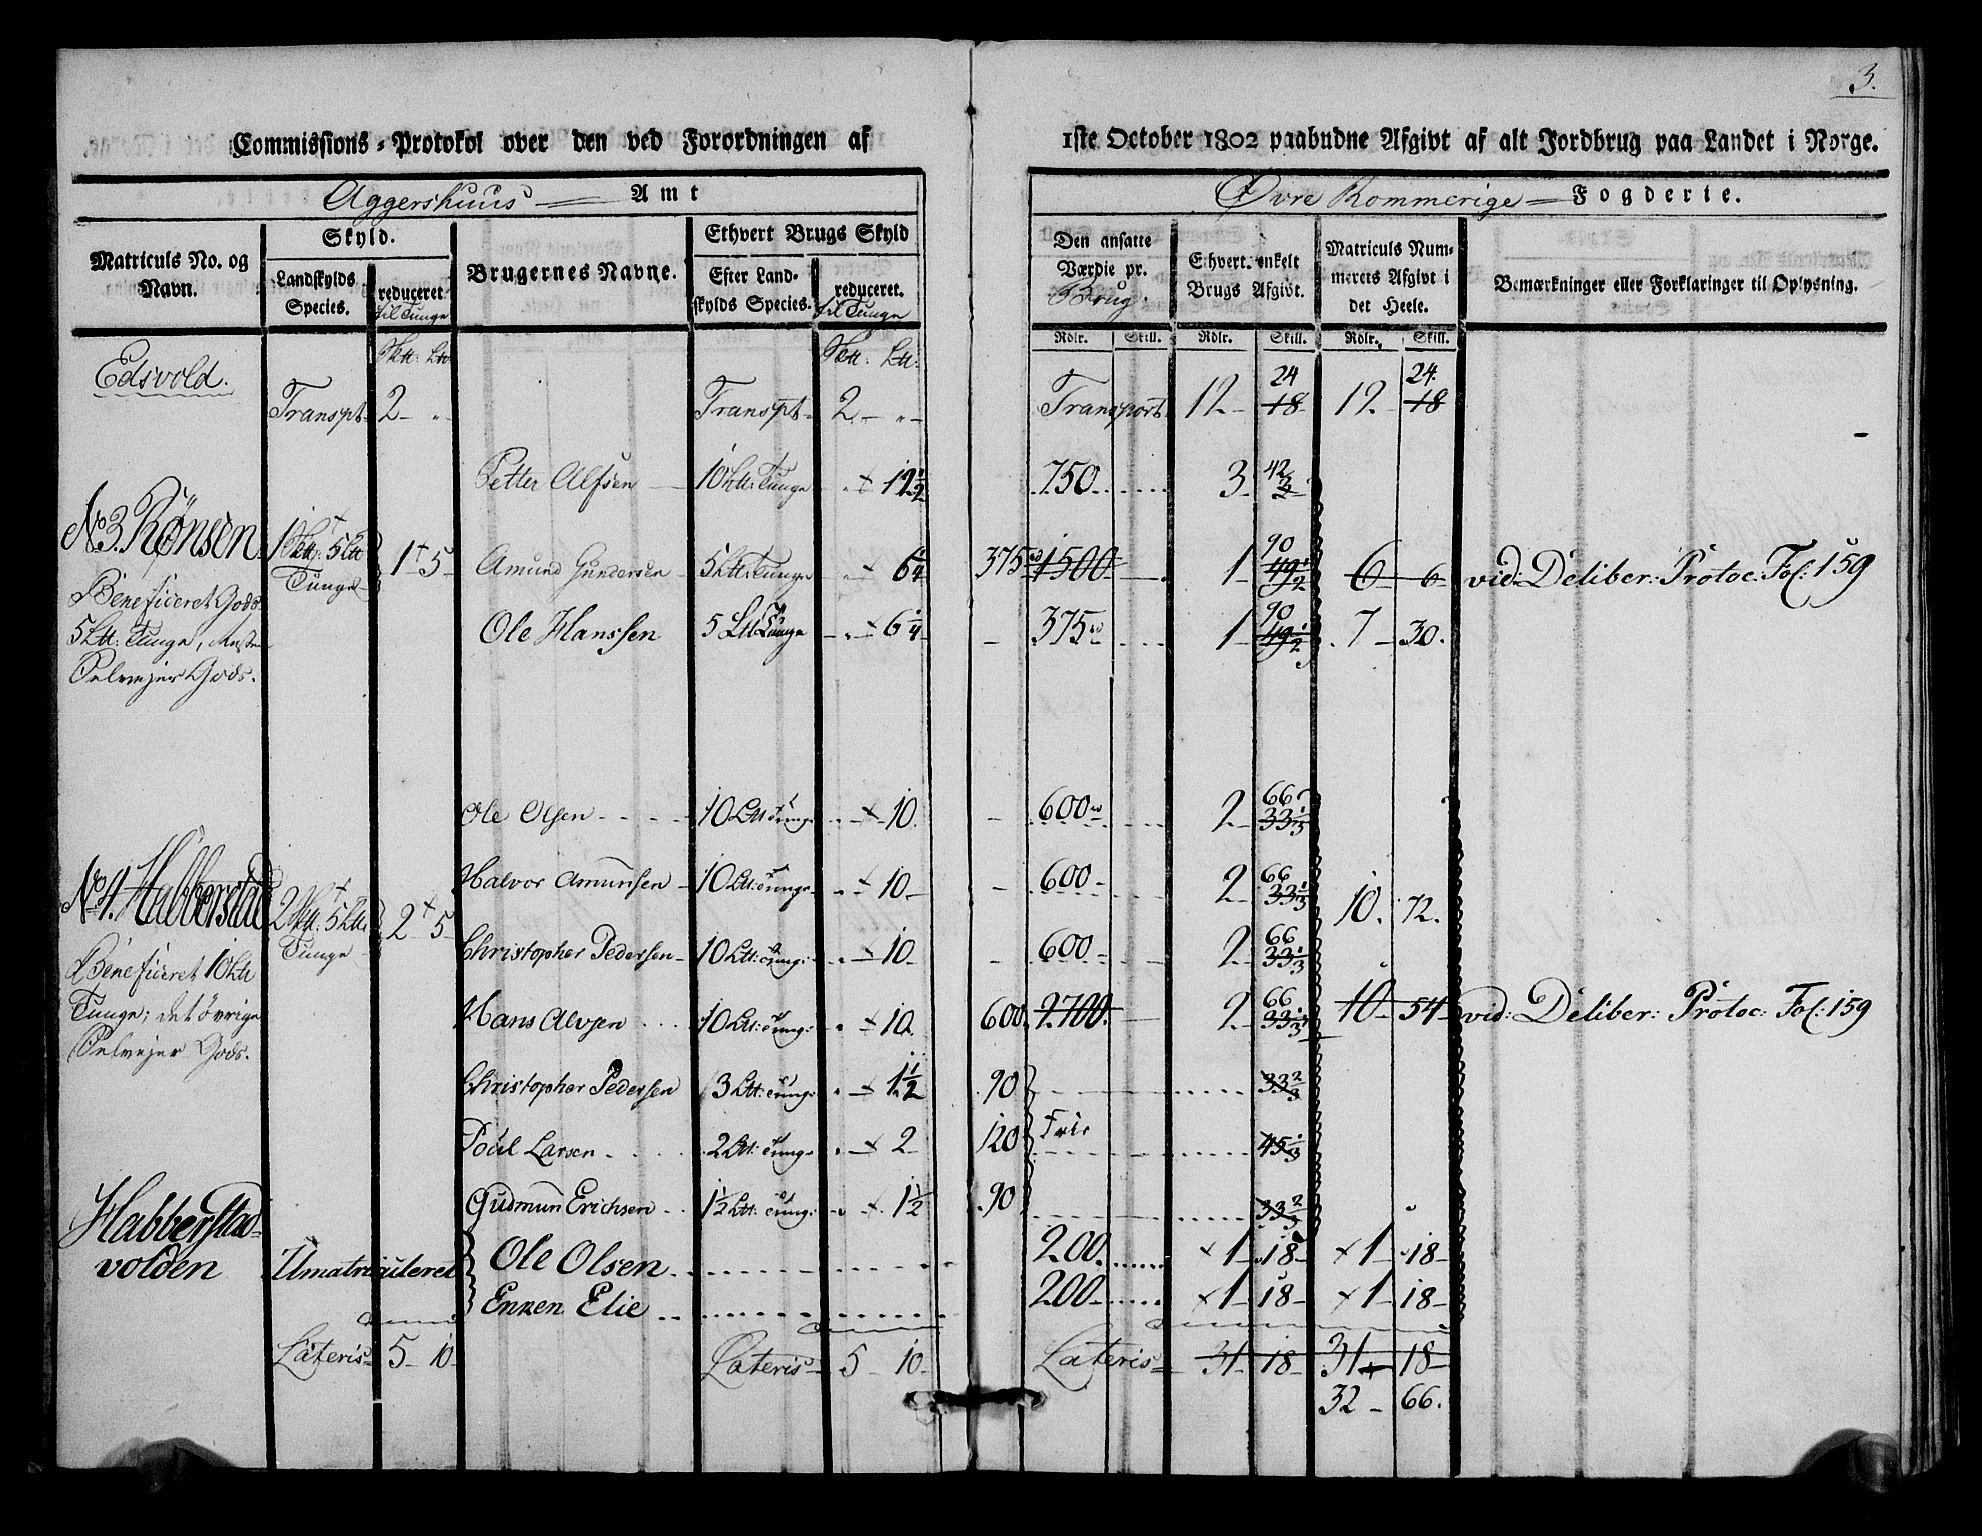 3.
Commissions-Protokol over den ved Forordningen af 1ste October 1802 paabudne Afgivt af alt Jordbrug paa Landet i Norge.
Aggershuus Amt
Øvre Rommerige Fogderie.
Matriculs No. og Navn.
Skyld.
Landskylds Species.
reduceret til Tunge
Brugernes Navne.
Ethvert Brugs Skyld
Efter Landskylds Species.
reduceret. til Tunge
Den ansatte Værdie pr. Brug.
Ehvert enkelt Brugs Afgivt.
Matriculs Nummerets Afgivt i det Heele.
Bemærkninger eller Forklaringer til Oplysning.
Rdlr. Skill. Rdlr. Skill. Rdlr. Skill.
Edsvold.
Transpt 2 - " - Transpt 2 - " - Transport 12 - 24 18 12 - 24. 18
Petter Alfsen 10 Ltt: Tunge 12 1/2 750. 3 - 42
No 3. Rønsen 1 Skt. 5 Ltt Tunge 1 5 Amund Gundersen 5 Ltt: Tunge 6 1/4 375 1500 1 - 90 49 1/2 6 - 6 vid: Deliber: Protoc: Fol: 159
Beneficeret Gods
5 Ltt: Tunge,
Selvejer Gods.
Ole Hanssen 5 Ltt Tunge 6 1/4 375 1 - 90 49 1/2 7 - 30.
Ole Olsen 10 Ltt Tunge 10. 600 2 - 66 33 1/3
Halvor Amunsen 10 Ltt: Tunge 10 - 600 - 2 - 66 33 1/3
No 4. Habberstad 2 Skt. 5 Ltt. Tunge 2 5 10. 72.
Christopher Pedersen 10 Ltt: Tunge 10 - 600 - 2 - 66 33 1/3
Beneficeret 10 Ltt
Tunge; det øvrige
Selvejer Gods.
Hans Alvsen 10 Ltt: Tunge 10 600. 2700. 2 - 66 33 1/3 10 - 54 vid: Deliber: Protoc: Fol: 159
Christopher Pedersen 3 Ltt: Tunge 1 1/2 90 33 2/3
Poul Larsen 2 Ltt: Tunge 2 - 120 Frie 45 1/3
Gudmun Erichsen 1 1/2 Ltt: Tunge 1 1/2 90 33 2/3
Habberstad-
volden
Umatriculeret Ole Olsen 200. 1 - 18 - 1 - 18
Enken Elie 200 - 1 - 18 - 1 - 18 -
Lateris 5 - 10 - Lateris 5 - 10 - Lateris 31 - 18 - 31 - 18 -
32 - 66.